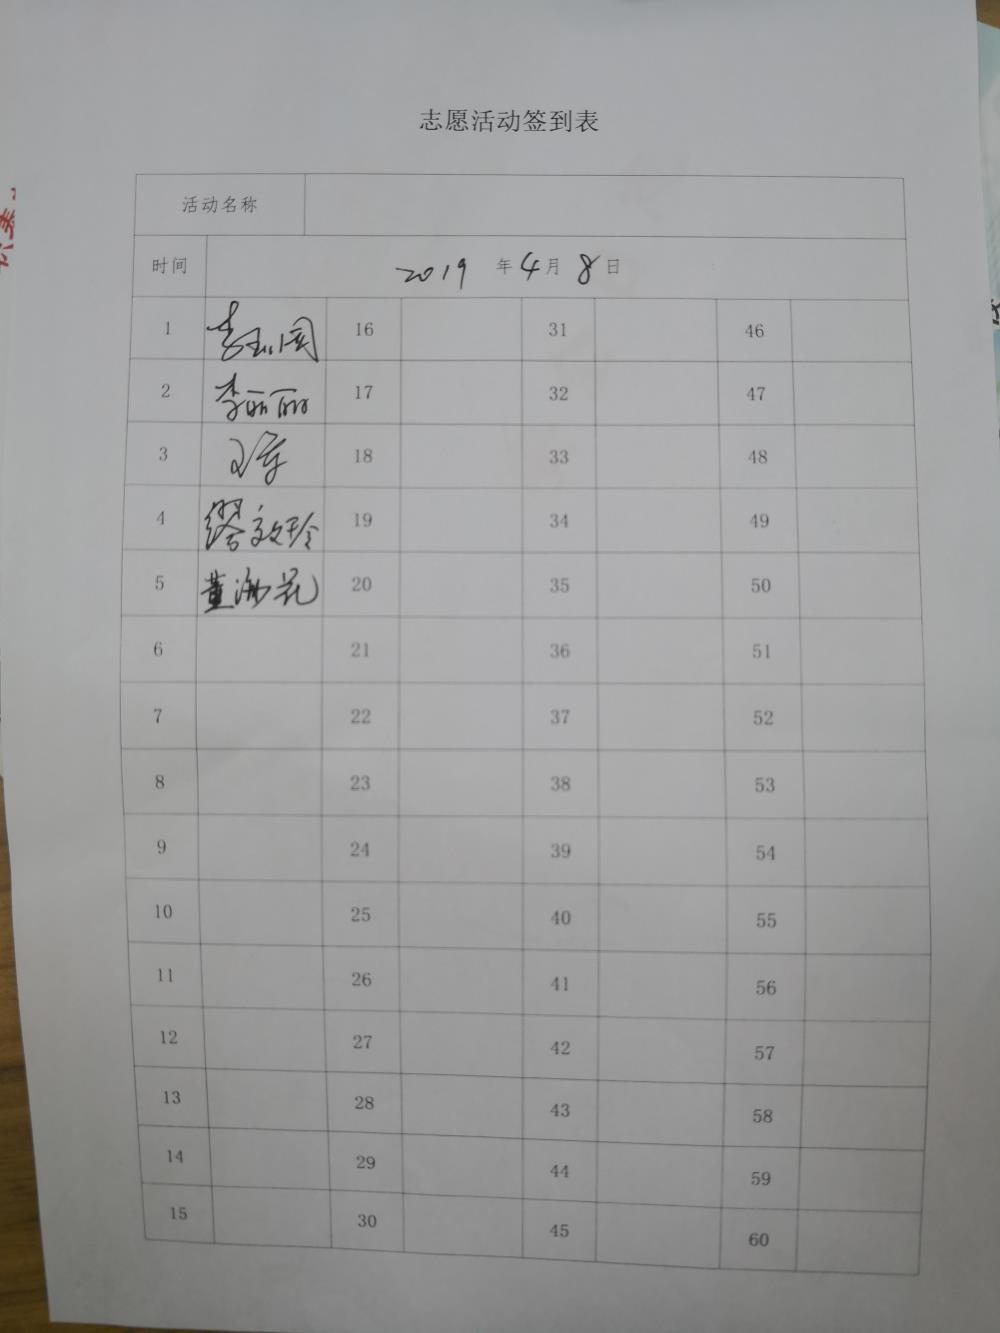 志愿活动签到表
活动名称
时间 2019 年 4 月 8 日
1 16 31 46
2 李丽丽 17 32 47
3 18 33 48
4 缪敏玲 19 34 49
5 董海花 20 35 50
6 21 36 51
7 22 37 52
8 23 38 53
9 24 39 54
10 25 40 55
11 26 41 56
12 27 42 57
13 28 43 58
14 29 44 59
15 30 45 60